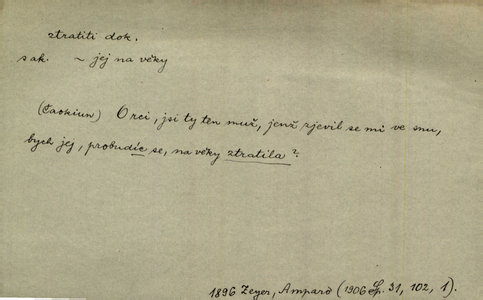 ztratiti dok.
s ak. ~ jej na věky
(Čaokiun) O rci, jsi ty ten muž, jenž zjevil se mi ve snu,
bych jej, probudíc se, na věky ztratila?
1896 Zeyer, Ampard (1906 Sp. 31, 102, 1).